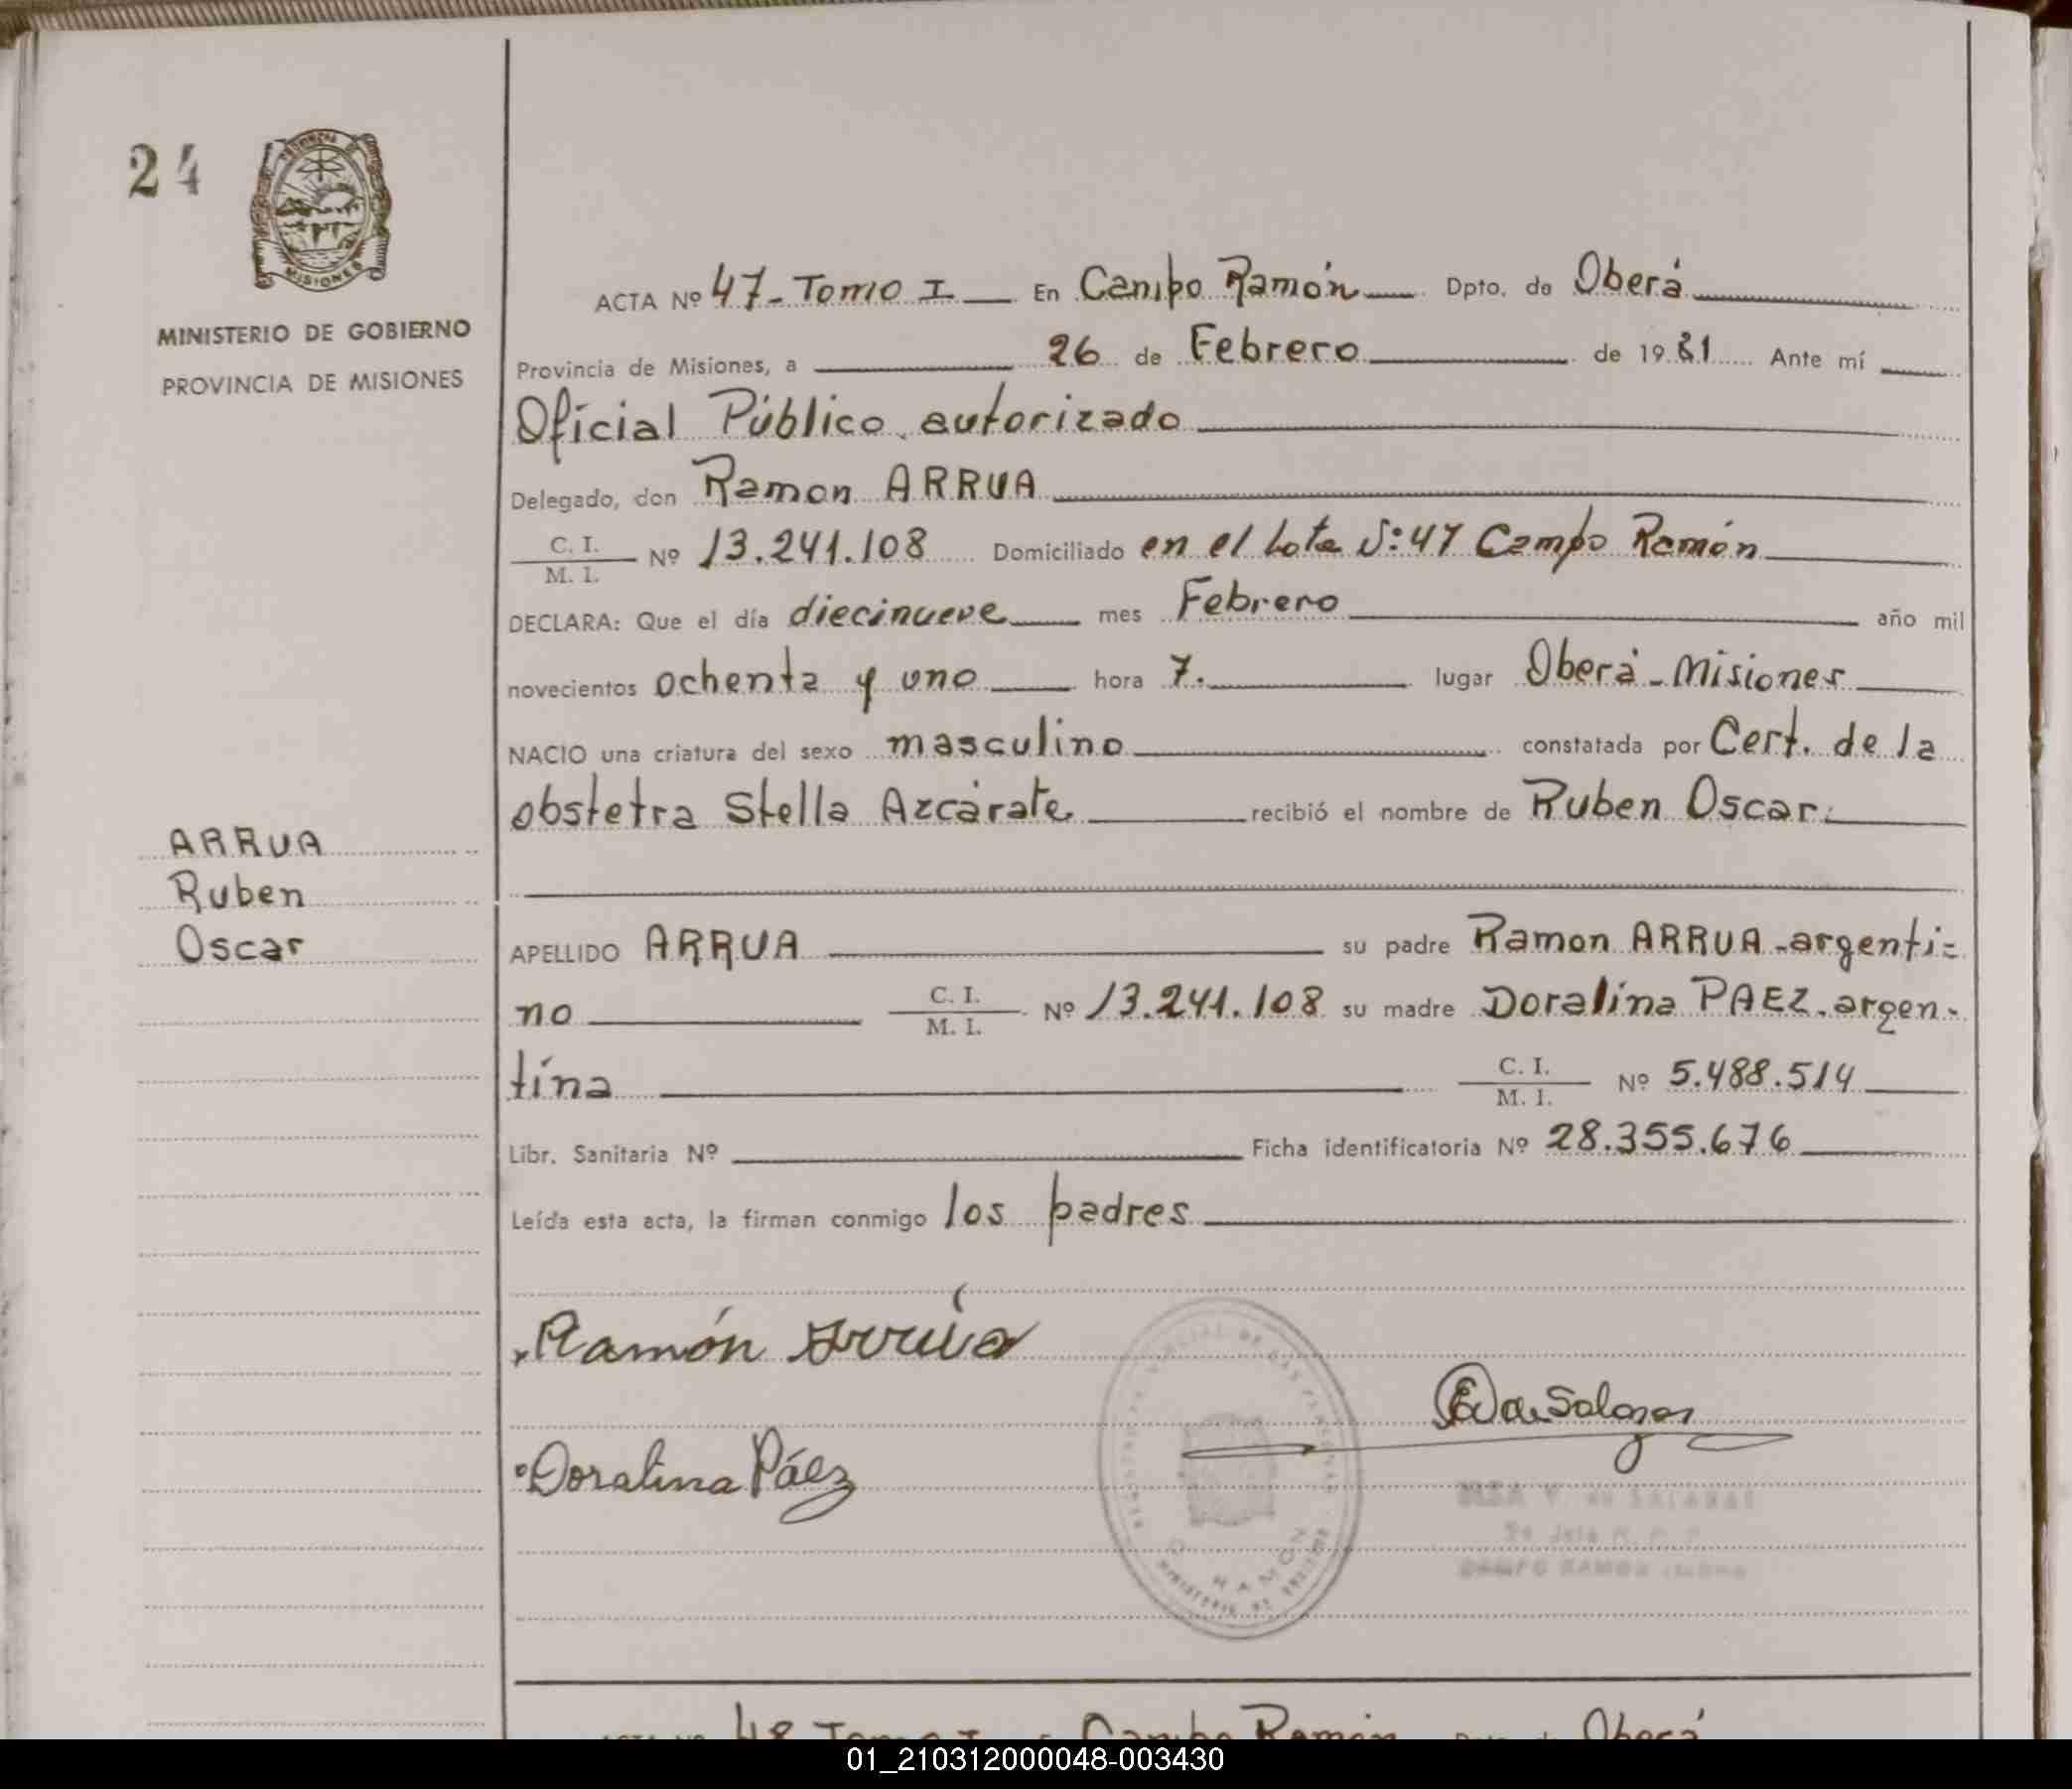 24
PROVINCIA DE
MISIONES
MINISTERIO DE GOBIERNO
PROVINCIA DE MISIONES
ARRUA
Ruben
Oscar
ACTA Nº 47 - Tomo I En Campo Ramón Dpto. de Oberá
Provincia de Misiones, a 26 de Febrero de 1981 Ante mí
Oficial Público autorizado
Delegado, don Ramon ARRUA
C. I. / M. I. Nº 13.241.108 Domiciliado en el Lote Nº 47 Campo Ramón
DECLARA: Que el día diecinueve mes Febrero año mil
novecientos ochenta y uno hora 7. lugar Oberá - Misiones
NACIO una criatura del sexo masculino constatada por Cert. de la
obstetra Stella Azcárate recibió el nombre de Ruben Oscar.
APELLIDO ARRUA su padre Ramon ARRUA - argenti=
no C. I. / M. I. Nº 13.241.108 su madre Doralina PAEZ. argen-
tina C. I. / M. I. Nº 5.488.514
Libr. Sanitaria Nº Ficha identificatoria Nº 28.355.676
Leída esta acta, la firman conmigo los padres
Ramón Arrúa
de Salazar
Doralina Páez
DE LAS PERSONAS
RAMON
MINISTERIO DE GOBIERNO
ELSA V. de SALAZAR
CAMPO RAMON
ACTA Nº 48 Tomo I En Campo Ramón Dpto. de Oberá
01_210312000048-003430